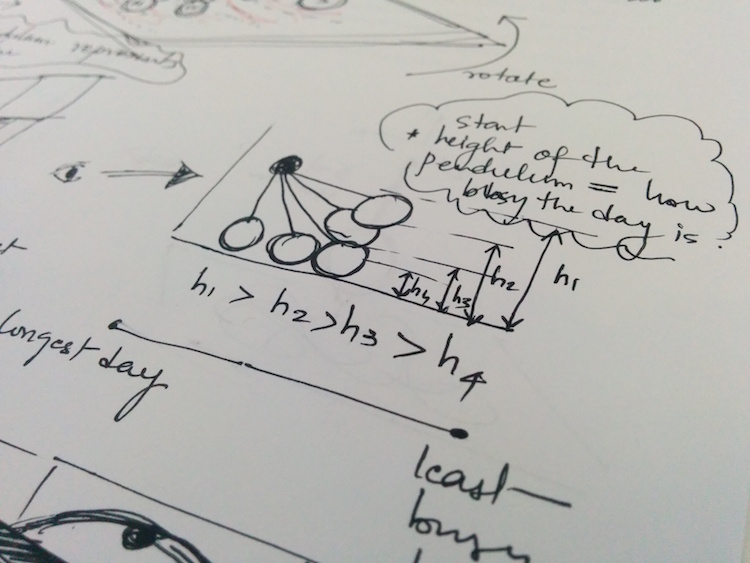 represents
rotate
start
* height of the
pendulum = how
busy the day is?
h1
h2
h3
h4
h1 > h2 > h3 > h4
longest day
least
busy